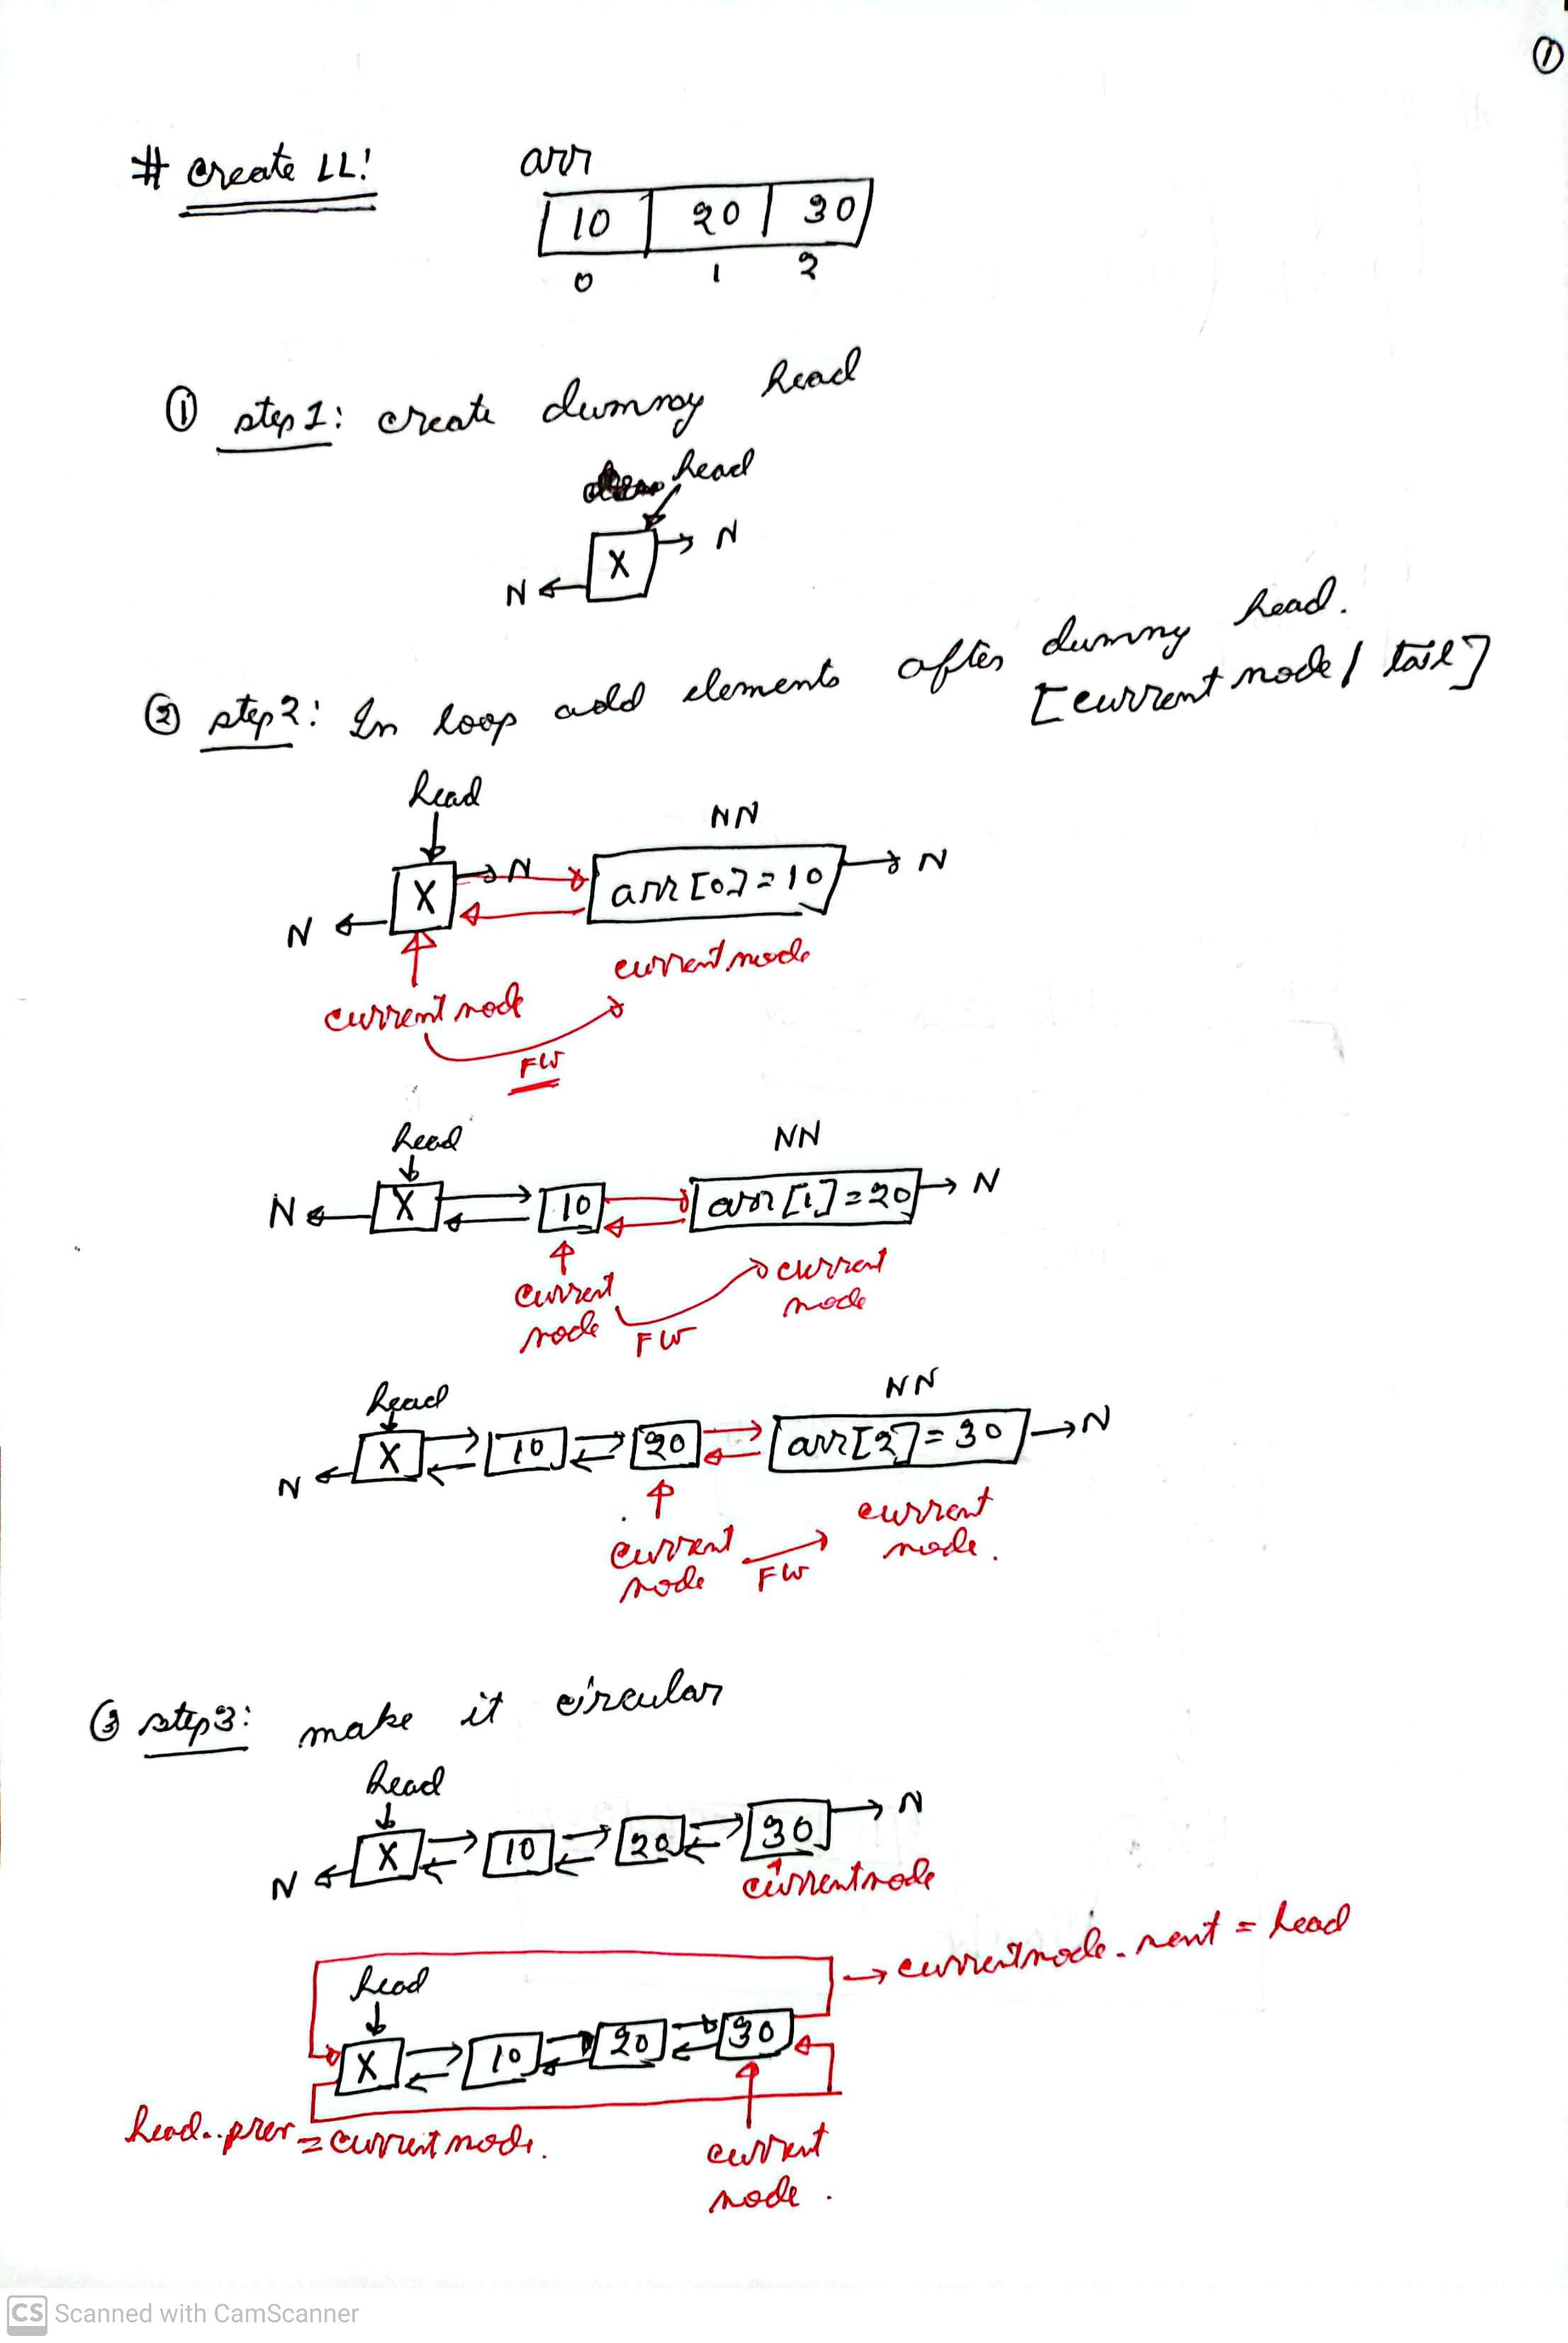 ①
# create LL!
arr
10 20 30
0 1 2
① step 1: create dummy head
head
X
N
N
② step 2: In loop add elements after dummy head.
[current node / tail]
head
NN
N X N arr[0]=10 N
current node
current node
FW
head
NN
N X 10 arr[1]=20 N
current node
current node
FW
head
NN
N X 10 20 arr[2]=30 N
current node
current node.
FW
③ step3: make it circular
head
N X 10 20 30 N
currentnode
→ currentnode.next = head
head
X 10 20 30
head.prev = currentnode.
current node.
CS Scanned with CamScanner